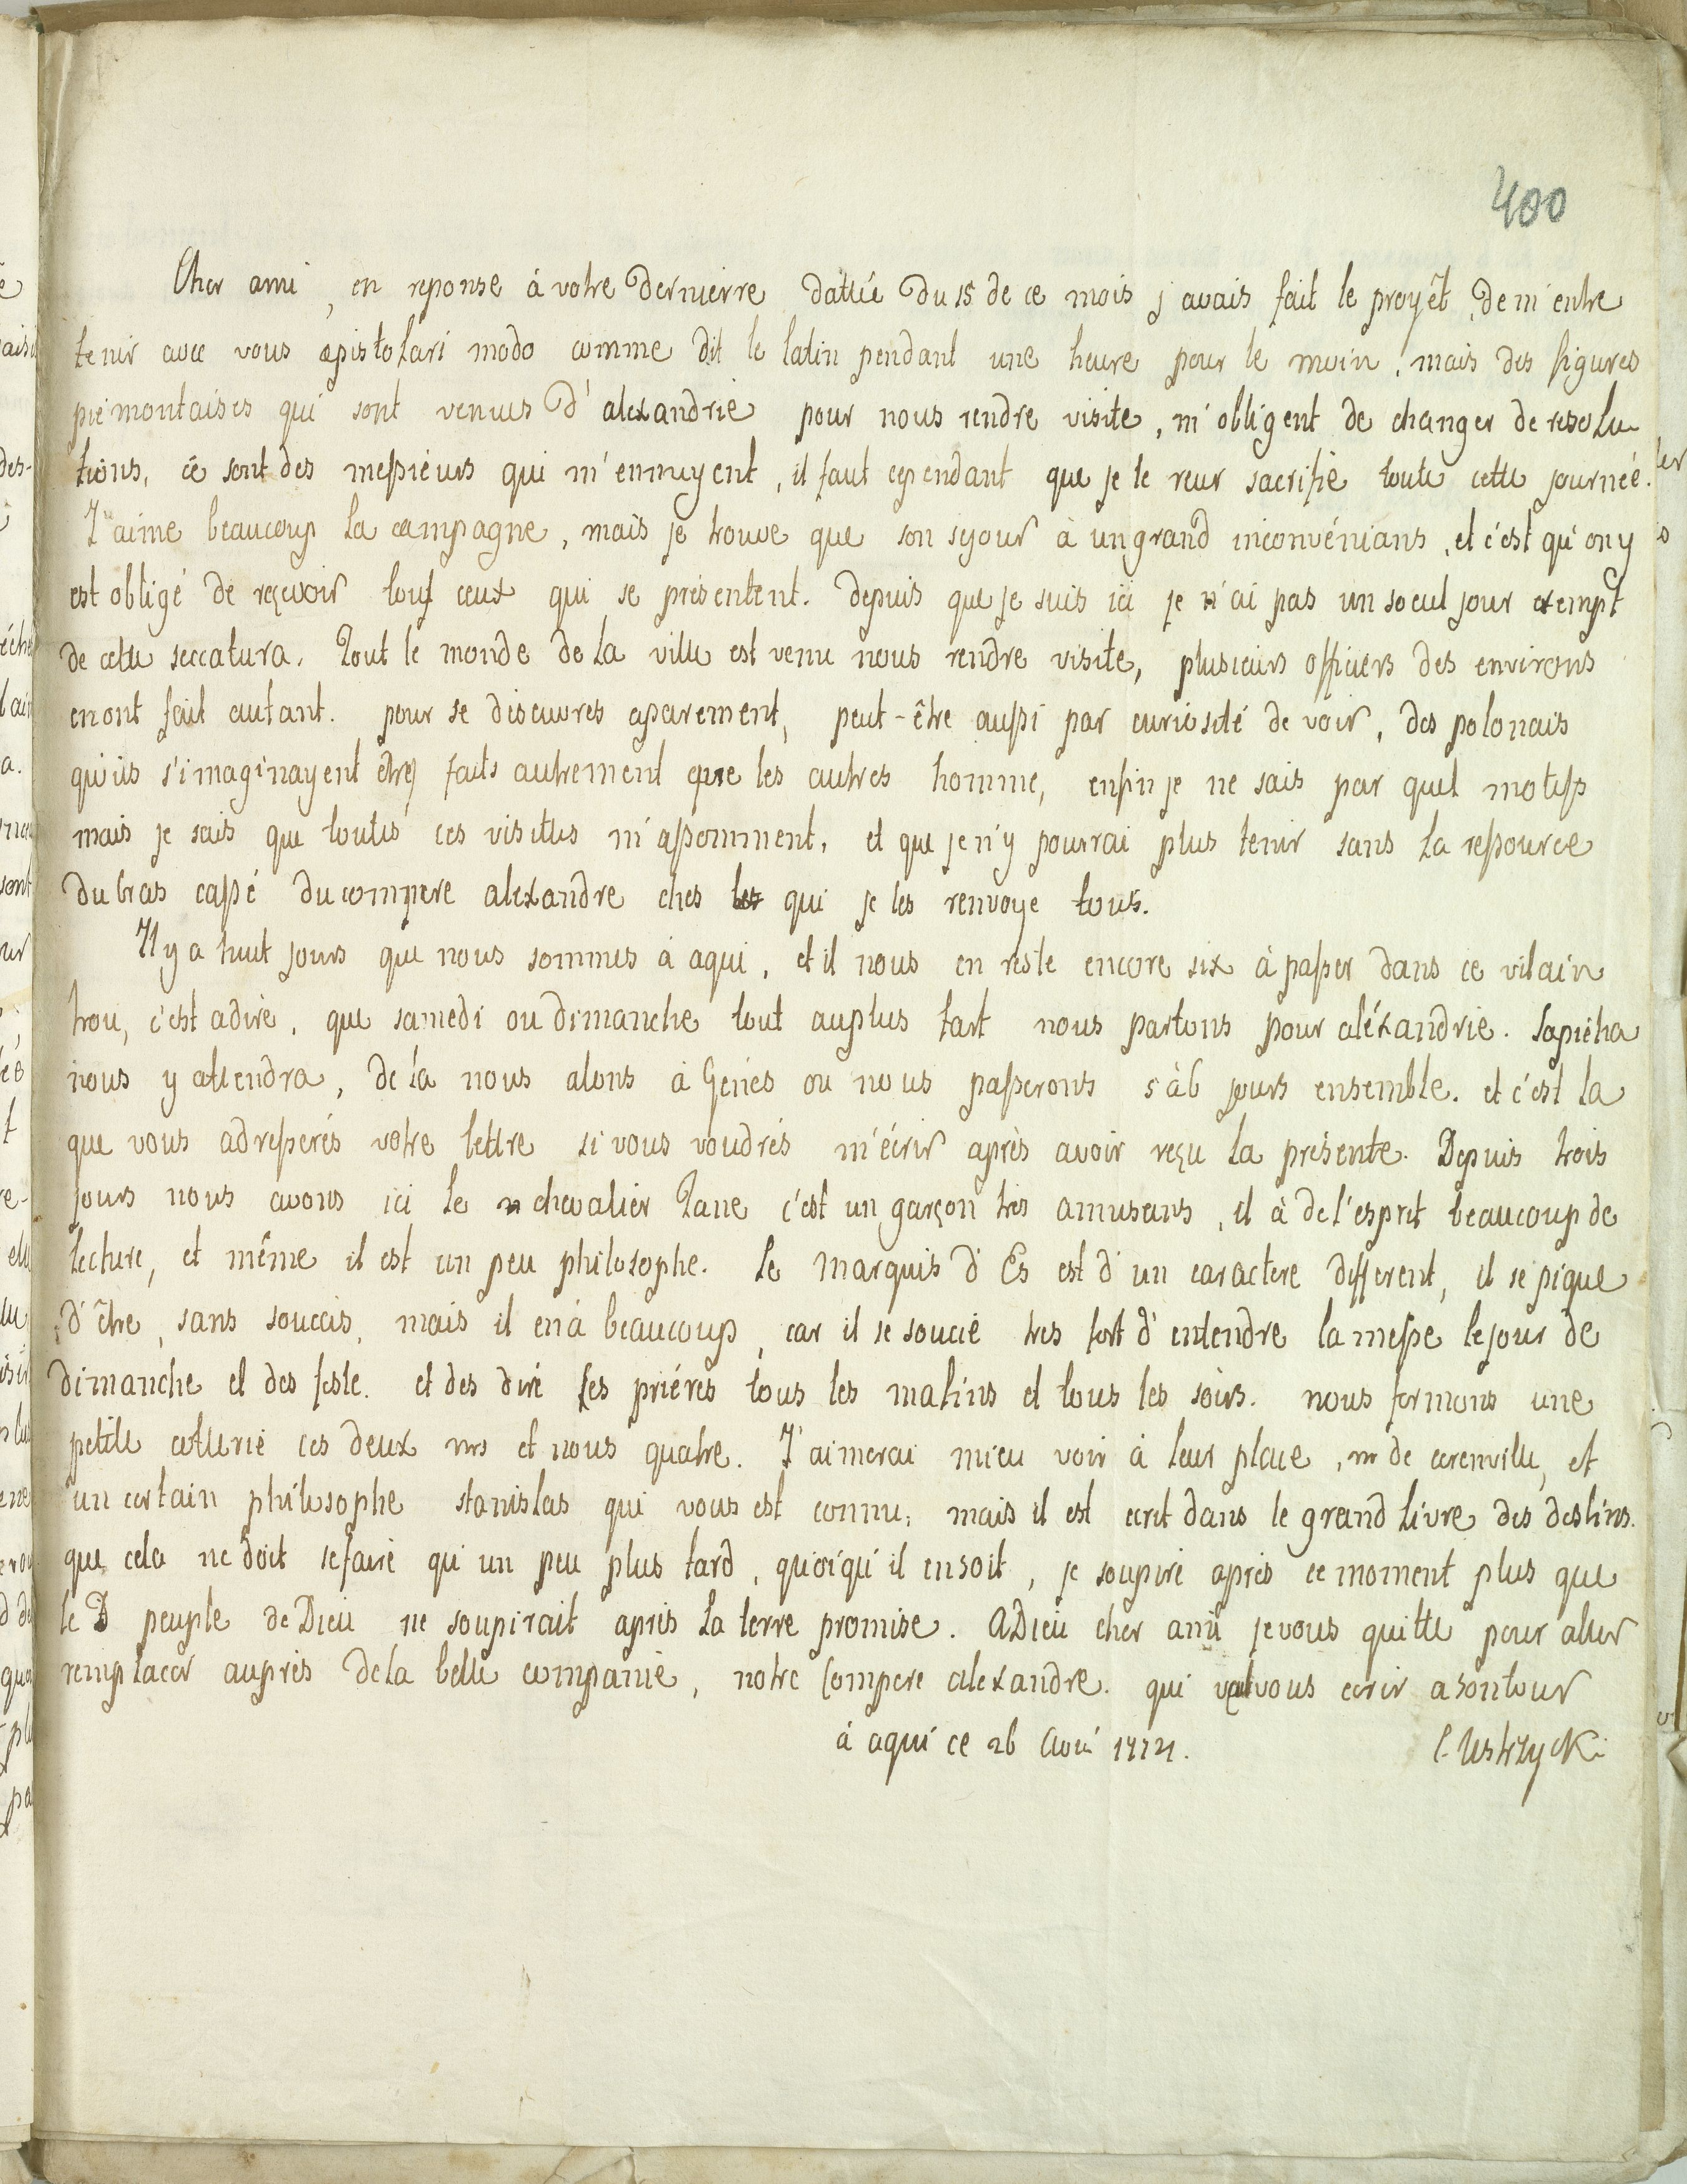 400
Cher ami, en reponse à votre dernierre dattée du 15 de ce mois j'avais fait le proyêt, de m'entre
tenir avec vous epistolari modo comme dit le latin pendant une heure pour le moin, mais des figures
piémontaises qui sont venues d'alexandrie pour nous rendre visite, m'obligent de changer de resolu
tions, ce sont des messieurs qui m'ennuyent, il faut cependant que je le reur sacrifie toute cette journée.
J'aime beaucoup la campagne, mais je trouve que son sejour à un grand inconvénians, et c'est qu'on y
est obligé de reçevoir touf ceux qui se présentent. depuis que je suis ici je n'ai pas un soeul jour exempt
de cette seccatura. Tout le monde de la ville est venu nous rendre visite, plusieurs officiers des environs
enont fait autant. pour se diseuvres aparement, peut-être aussi par curiosité de voir, des polonais
qu'ils s'imaginayent être faits autrement que les autres homme, enfin je ne sais par quel motifs
mais je sais que toutes ces visittes m'assomment, et que je n'y pourrai plus tenir sans la ressource
du bras cassé du compere alexandre ches qui je les renvoye tous.
Il y a huit jours que nous sommes à aqui, et il nous en reste encore six à passer dans ce vilain
trou, c'est adire, que samedi ou dimanche tout auplus tart nous partons pour aléxandrie. Sapieha
nous y attendra, de la nous alons à Génes ou nous passerons 5 à 6 jours ensemble. et c'est la
que vous adresserés votre lettre si vous voudrés m'écrir après avoir reçu la présente. Depuis trois
jours nous avons ici le chevalier Tane c'est un garçon très amusans, il à de l'esprit beaucoup de
lecture, et même il est un peu philosophe. Le marquis d'Es est d'un caractere different, il se pique
d'être, sans souccis, mais il en à beaucoup, car il se soucie tres fort d'entendre la messe le jour de
dimanche et des feste. et des dire ses priéres tous les matins et tous les soirs. nous formons une
petite cotterie ces deux mrs et nous quatre. J'aimerai mieu voir à leur place, mr de cerenville, et
un certain philosophe stanislas qui vous est connu, mais il est ecrit dans le grand livre des destins.
que cela ne doit se faire qu'un peu plus tard, quoiqu'il ensoit, je soupire après ce moment plus que
le peuple de Dieu ne soupirait après la terre promise. ADieu cher ami je vous quitte pour aller
remplacer auprès dela belle companie, notre Compere alexandre. qui va vous ecrir a sontour
à aqui ce 26 Aoû 1774.
C. Ustrzycki